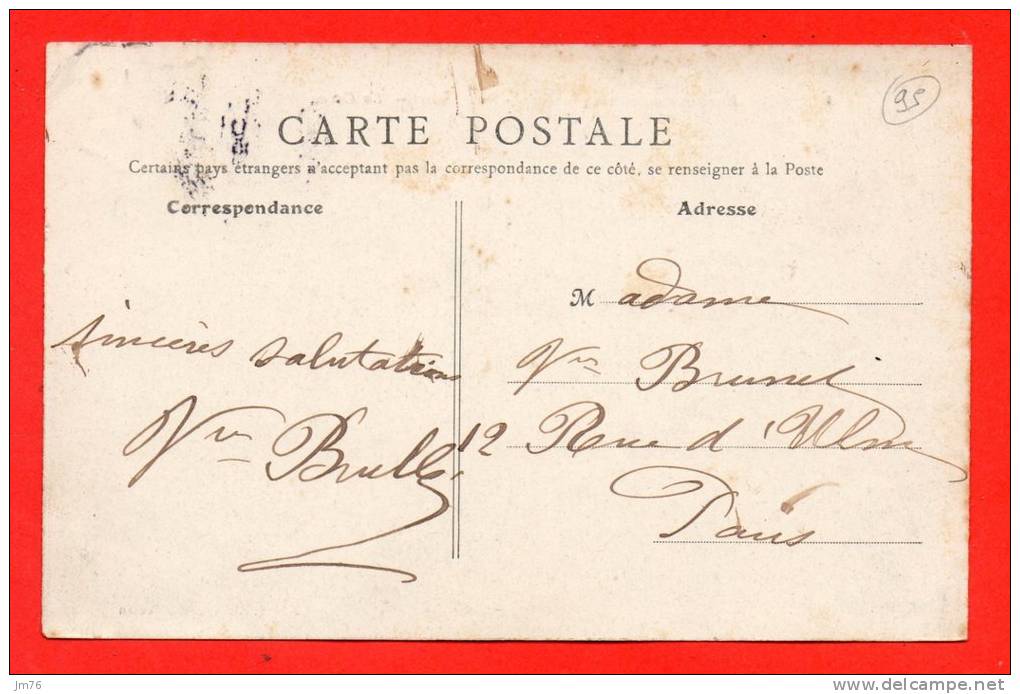 95
CARTE POSTALE
Certains pays étrangers n'acceptant pas la correspondance de ce côté, se renseigner à la Poste
Correspondance
Adresse
Madame
Vve Brunet
12 Rue d'Ulm
Paris
sincères salutations
Vve Brulé
jm76
www.delcampe.net